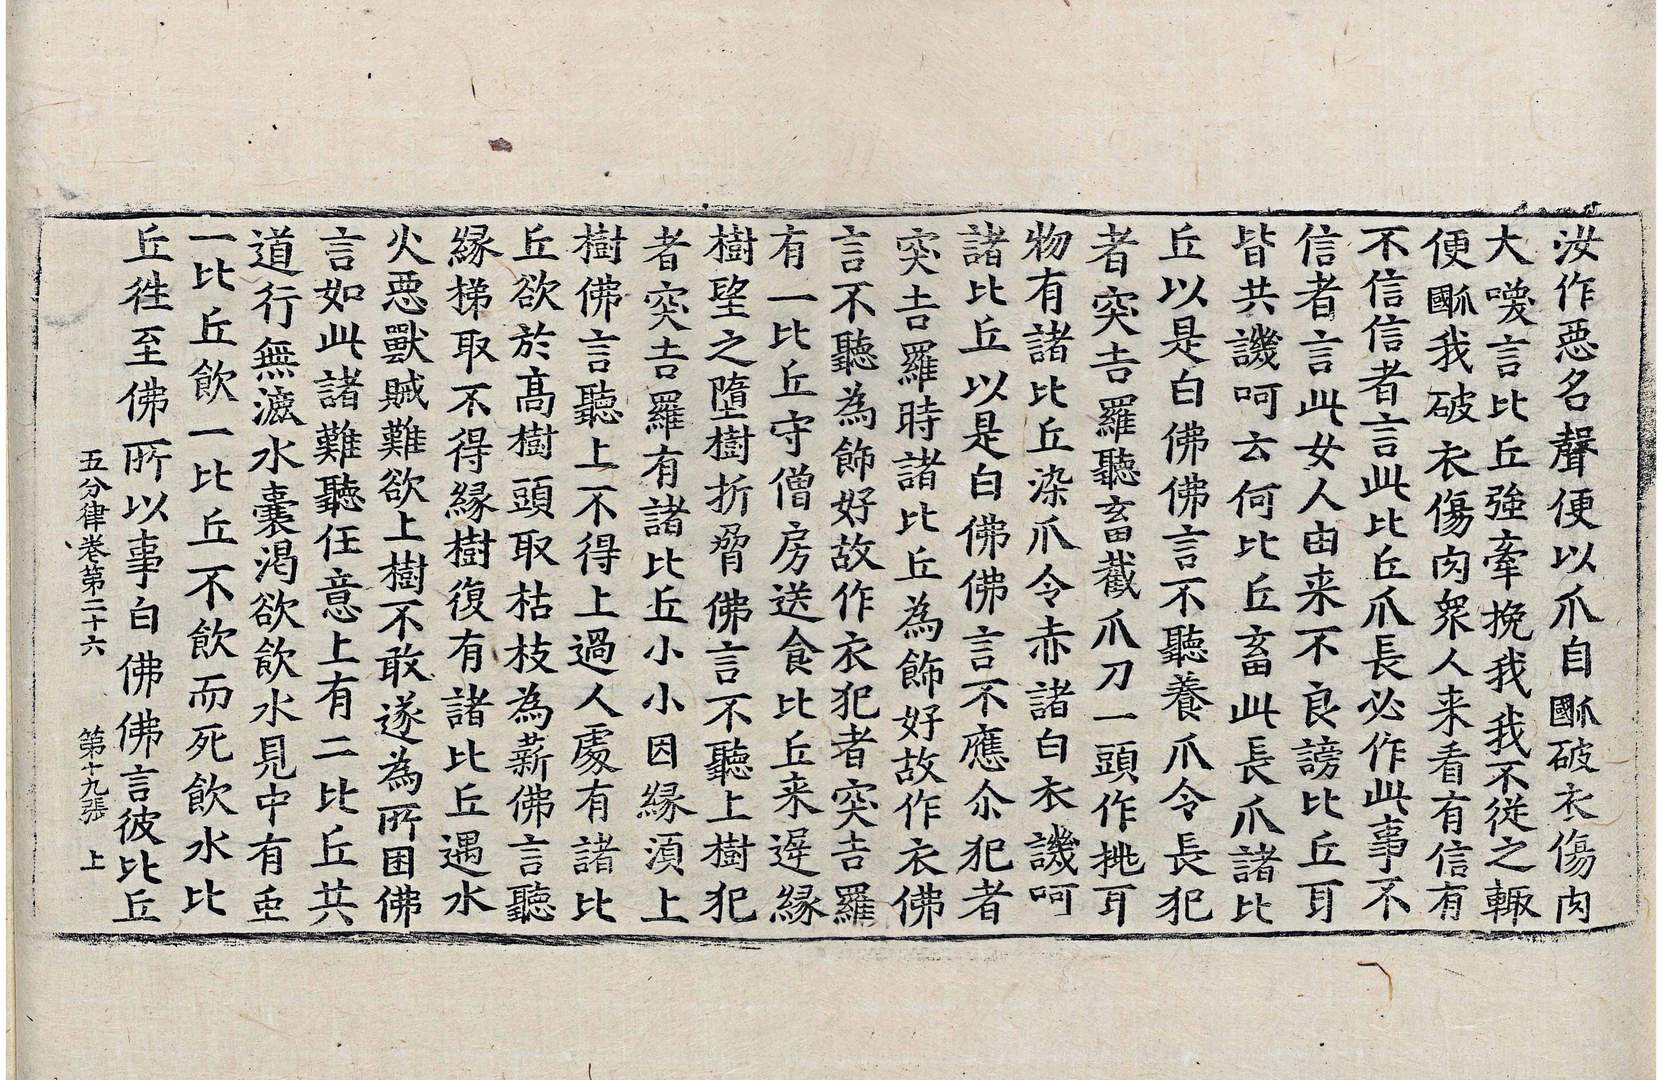 汝作惡名聲便以爪自𤔩破衣傷肉
大喚言比丘強牽挽我我不從之輙
便𤔩我破衣傷肉衆人来看有信有
不信信者言此比丘爪長必作此事不
信者言此女人由来不良謗比丘耳
皆共譏呵云何比丘畜此長爪諸比
丘以是白佛佛言不聽養爪令長犯
者突吉羅聽畜截爪刀一頭作挑耳
物有諸比丘染爪令赤諸白衣譏呵
諸比丘以是白佛佛言不應尒犯者
突吉羅時諸比丘為飾好故作衣佛
言不聽為飾好故作衣犯者突吉羅
有一比丘守僧房送食比丘来遅縁
樹望之墮樹折脅佛言不聽上樹犯
者突吉羅有諸比丘小小因縁湏上
樹佛言聽上不得上過人處有諸比
丘欲於高樹頭取枯枝為薪佛言聽
縁梯取不得縁樹復有諸比丘遇水
火惡獸賊難欲上樹不敢遂為所困佛
言如此諸難聽任意上有二比丘共
道行無漉水囊渇欲飲水見中有虫
一比丘飲一比丘不飲而死飲水比
丘徃至佛所以事白佛佛言彼比丘
五分律卷第二十六 第十九張 上